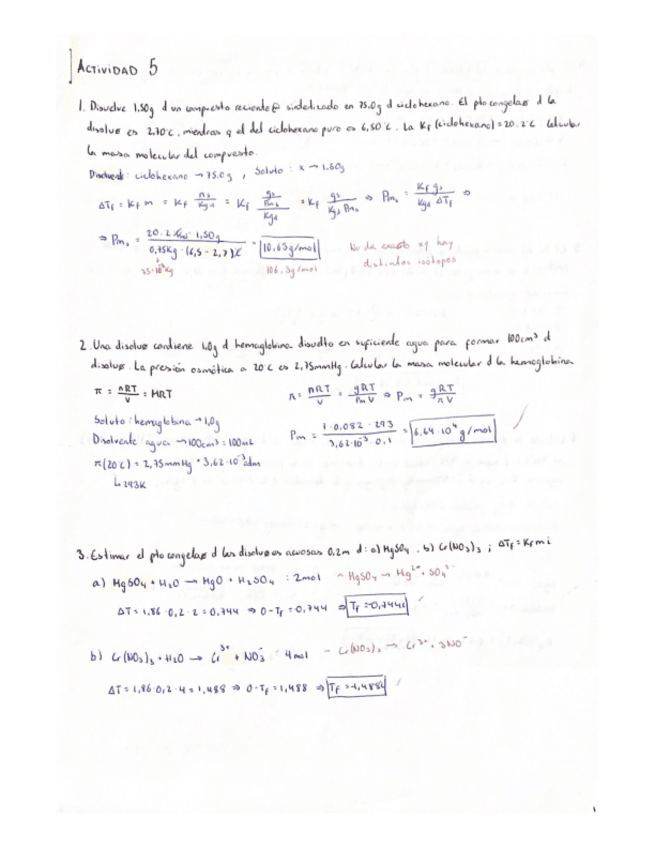 ACTIVIDAD 5
1. Disuelve 1,50g d un compuesto reciente@ sintetizado en 75.0g d ciclohexano. El pto congelae d la
disolue es 2,70°C, mientras q el del ciclohexano puro es 6,50°C. La Kf (ciclohexano) = 20.2°C. Calcular
la masa molecular del compuesto.
Disolvente: ciclohexano → 75.0g, Soluto: x → 1.50g
ΔTf = Kf m = Kf ns/Kgd = Kf (gs/Pms)/Kgd = Kf gs/(Kgd Pms) ⇒ Pms = Kf gs/(Kgd ΔTf) ⇒
⇒ Pms = 20.2 1,50g / 0,75Kg · (6,5 - 2,7)°C = 10.63g/mol
No da exacto xq hay
distintos isótopos
75·10⁻³Kg 106,3g/mol
2. Una disolue contiene 1,0g d hemoglobina disuelto en suficiente agua para formar 100cm³ d
disolue. La presión osmótica a 20°C es 2,75mmHg. Calcular la masa molecular d la hemoglobina
π = nRT/V = MRT π = nRT/V = gRT/(Pm V) ⇒ Pm = gRT/(πV)
Soluto: hemoglobina → 1,0g
Disolvente: agua → 100cm³ = 100mL
Pm = 1 · 0,082 · 293 / 3,62·10⁻³ · 0,1 = 6,64·10⁴ g/mol
π(20°C) = 2,75mmHg · 3,62·10⁻³ atm
↳ 293K
3. Estimar el pto congelae d las disolues acuosas 0,2m d: a) MgSO₄, b) Cr(NO₃)₃; ΔTf = Kf m i
a) MgSO₄ + H₂O → MgO + H₂SO₄ : 2mol - MgSO₄ → Mg²⁺ + SO₄²⁻
ΔT = 1,86 · 0,2 · 2 = 0,744 ⇒ 0 - Tf = 0,744 ⇒ Tf = -0,744°C
b) Cr(NO₃)₃ + H₂O → Cr³⁺ + NO₃⁻ 4mol - Cr(NO₃)₃ → Cr³⁺ + 3NO⁻
ΔT = 1,86 · 0,2 · 4 = 1,488 ⇒ 0 - Tf = 1,488 ⇒ Tf = -1,488°C